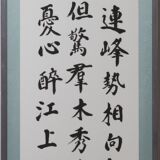 連峰勢相向
但驚羣木秀
憂心醉江上